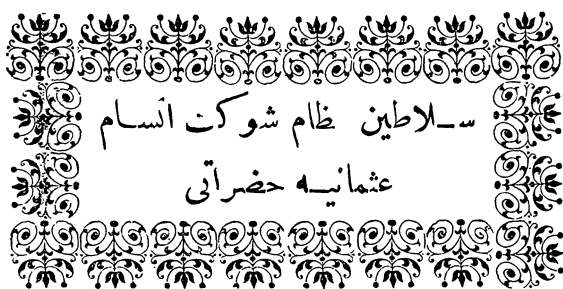 سلاطين ظام شوكت اتسام
عثمانيه حضراتى